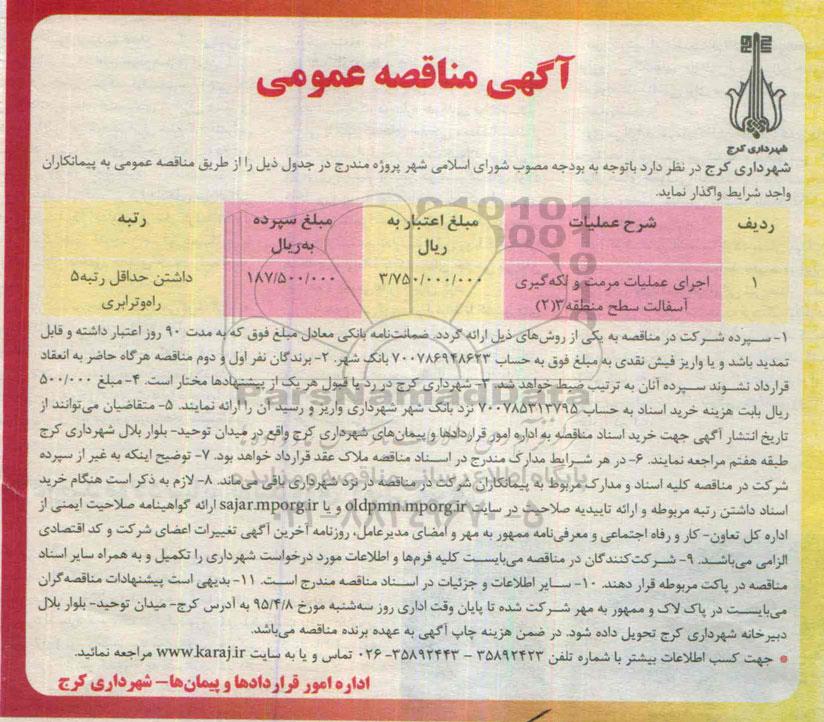 آگهی مناقصه عمومی
شهرداری کرج
شهرداری کرج در نظر دارد باتوجه به بودجه مصوب شورای اسلامی شهر پروژه مندرج در جدول ذیل را از طریق مناقصه عمومی به پیمانکاران
واجد شرایط واگذار نماید.
ردیف شرح عملیات مبلغ اعتبار به ریال مبلغ سپرده به‌ریال رتبه
۱ اجرای عملیات مرمت و لکه‌گیری آسفالت سطح منطقه۳(۲) ۳/۷۵۰/۰۰۰/۰۰۰ ۱۸۷/۵۰۰/۰۰۰ داشتن حداقل رتبه۵ راه‌وترابری
۱- سپرده شرکت در مناقصه به یکی از روش‌های ذیل ارائه گردد. ضمانت‌نامه بانکی معادل مبلغ فوق که به مدت ۹۰ روز اعتبار داشته و قابل
تمدید باشد و یا واریز فیش نقدی به مبلغ فوق به حساب ۷۰۰۷۸۶۹۴۸۶۲۳ بانک شهر. ۲- برندگان نفر اول و دوم مناقصه هرگاه حاضر به انعقاد
قرارداد نشوند سپرده آنان به ترتیب ضبط خواهد شد. ۳- شهرداری کرج در رد یا قبول هر یک از پیشنهادها مختار است. ۴- مبلغ ۵۰۰/۰۰۰
ریال بابت هزینه خرید اسناد به حساب ۷۰۰۷۸۵۳۱۳۷۹۵ نزد بانک شهر شهرداری واریز و رسید آن را ارائه نمایند. ۵- متقاضیان می‌توانند از
تاریخ انتشار آگهی جهت خرید اسناد مناقصه به اداره امور قراردادها و پیمان‌های شهرداری کرج واقع در میدان توحید- بلوار بلال شهرداری کرج
طبقه هفتم مراجعه نمایند. ۶- در هر شرایط مدارک مندرج در اسناد مناقصه ملاک عقد قرارداد خواهد بود. ۷- توضیح اینکه به غیر از سپرده
شرکت در مناقصه کلیه اسناد و مدارک مربوط به پیمانکاران شرکت در مناقصه در نزد شهرداری باقی می‌ماند. ۸- لازم به ذکر است هنگام خرید
اسناد داشتن رتبه مربوطه و ارائه تاییدیه صلاحیت در سایت oldpmn.mporg.ir و یا sajar.mporg.ir ارائه گواهینامه صلاحیت ایمنی از
اداره کل تعاون- کار و رفاه اجتماعی و معرفی‌نامه ممهور به مهر و امضای مدیرعامل، روزنامه آخرین آگهی تغییرات اعضای شرکت و کد اقتصادی
الزامی می‌باشد. ۹- شرکت‌کنندگان در مناقصه می‌بایست کلیه فرم‌ها و اطلاعات مورد درخواست شهرداری را تکمیل و به همراه سایر اسناد
مناقصه در پاکت مربوطه قرار دهند. ۱۰- سایر اطلاعات و جزئیات در اسناد مناقصه مندرج است. ۱۱- بدیهی است پیشنهادات مناقصه‌گران
می‌بایست در پاک لاک و ممهور به مهر شرکت شده تا پایان وقت اداری روز سه‌شنبه مورخ ۹۵/۴/۸ به آدرس کرج- میدان توحید- بلوار بلال
دبیرخانه شهرداری کرج تحویل داده شود. در ضمن هزینه چاپ آگهی به عهده برنده مناقصه می‌باشد.
• جهت کسب اطلاعات بیشتر با شماره تلفن ۳۵۸۹۲۴۲۳ – ۳۵۸۹۲۴۴۳- ۰۲۶ تماس و یا به سایت www.karaj.ir مراجعه نمائید.
اداره امور قراردادها و پیمان‌ها– شهرداری کرج
ParsNamadData